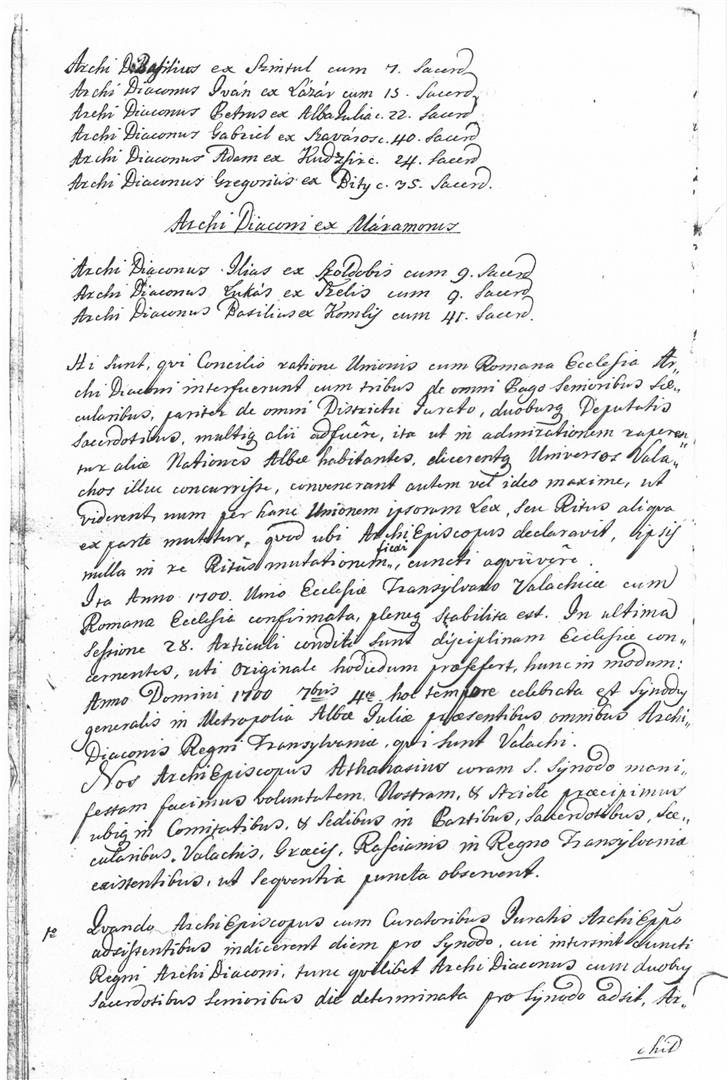 Archi D. Basilius ex Szintul cum 7. Sacerd
Archi Diaconus Iván ex Lázár cum 15. Sacerd
Archi Diaconus Petrus ex Alba Iulia c. 22. Sacerd
Archi Diaconus Gabriel ex Szaváros c. 40. Sacerd
Archi Diaconus Adam ex Kudzsir c. 24. Sacerd
Archi Diaconus Gregorius ex Bity c. 35. Sacerd.
Archi Diaconi ex Máramorus
Archi Diaconus Ilias ex Szoldobis cum 9. Sacerd
Archi Diaconus Lukás ex Szelis cum 9. Sacerd
Archi Diaconus Basilius ex Komlij cum 41. Sacerd.
Hi sunt, qvi Concilio ratione Unionis cum Romana Ecclesia Ar„
chi Diaconi interfuerunt cum tribus de omni Pago Senioribus Sæ„
cularibus, pariter de omni Districtu Iurato, duobusq Deputatis
Sacerdotibus, multiq alii adfuêre, ita ut in admirationem raperen„
tur aliæ Nationes Albæ habitantes, dicerentq Universos Vala„
chos illuc concurrisse, convenerant autem vel ideo maxime, ut
viderent, num per hanc Unionem ipsorum Lex, seu Ritus aliqua
ex parte mutetur, qvod ubi Archi Episcopus declaravit, ipsis
nulla in re Ritûs mutationem fieri, cuncti aqvievêre.
Ita Anno 1700. Unio Ecclesiæ Transylvano Valachicæ cum
Romana Ecclesia confirmata, pleneq stabilita est. In ultima
Sessione 28. Articuli conditi sunt disciplinam Ecclesiæ con„
cernentes, uti Originale hodiedum præsefert, hunc in modum:
Anno Domini 1700 7bris 4te hoc tempore celebrata est Synodus
generalis in Metropolia Albæ Iuliæ præsentibus omnibus Archi„
Diaconis Regni Transylvaniæ, qvi sunt Valachi.
Nos Archi Episcopus Athanasius coram S. Synodo mani„
festam facimus voluntatem Nostram, & Stricte præcipimus
ubiq in Comitatibus, & Sedibus in Partibus, Sacerdotibus, Sæ„
cularibus, Valachis, Græcis, Rascianis in Regno Transylvaniæ
existentibus, ut Seqventia puncta observent.
1o Qvando Archi Episcopus cum Curatoribus Iuratis Archi Eppo
adsistentibus indicerent diem pro Synodo, cui intersint cuncti
Regni Archi Diaconi, tunc qvilibet Archi Diaconus cum duobus
Sacerdotibus Senioribus die determinata pro Synodo adsit, Ar„
chiD